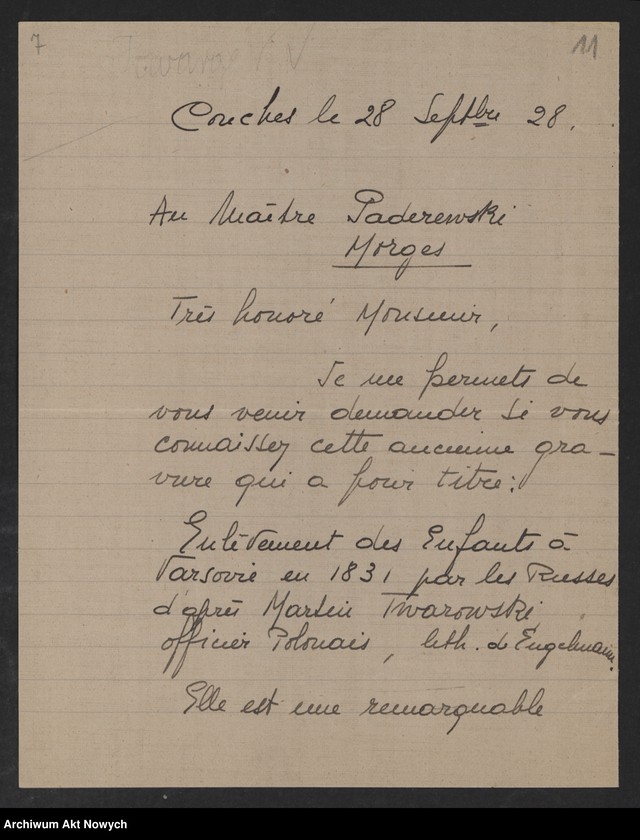 7
11
Conches le 28 Septbre 28.
Au Maître Paderewski
Morges
Très honoré Monsieur,
Je me permets de
vous venir demander si vous
connaissez cette ancienne gra-
vure qui a pour titre:
Enlèvement des Enfants à
Varsovie en 1831 par les Russes
d'après Martin Twarowski,
officier Polonais, lith. de Engelmann.
Elle est une remarquable
Archiwum Akt Nowych